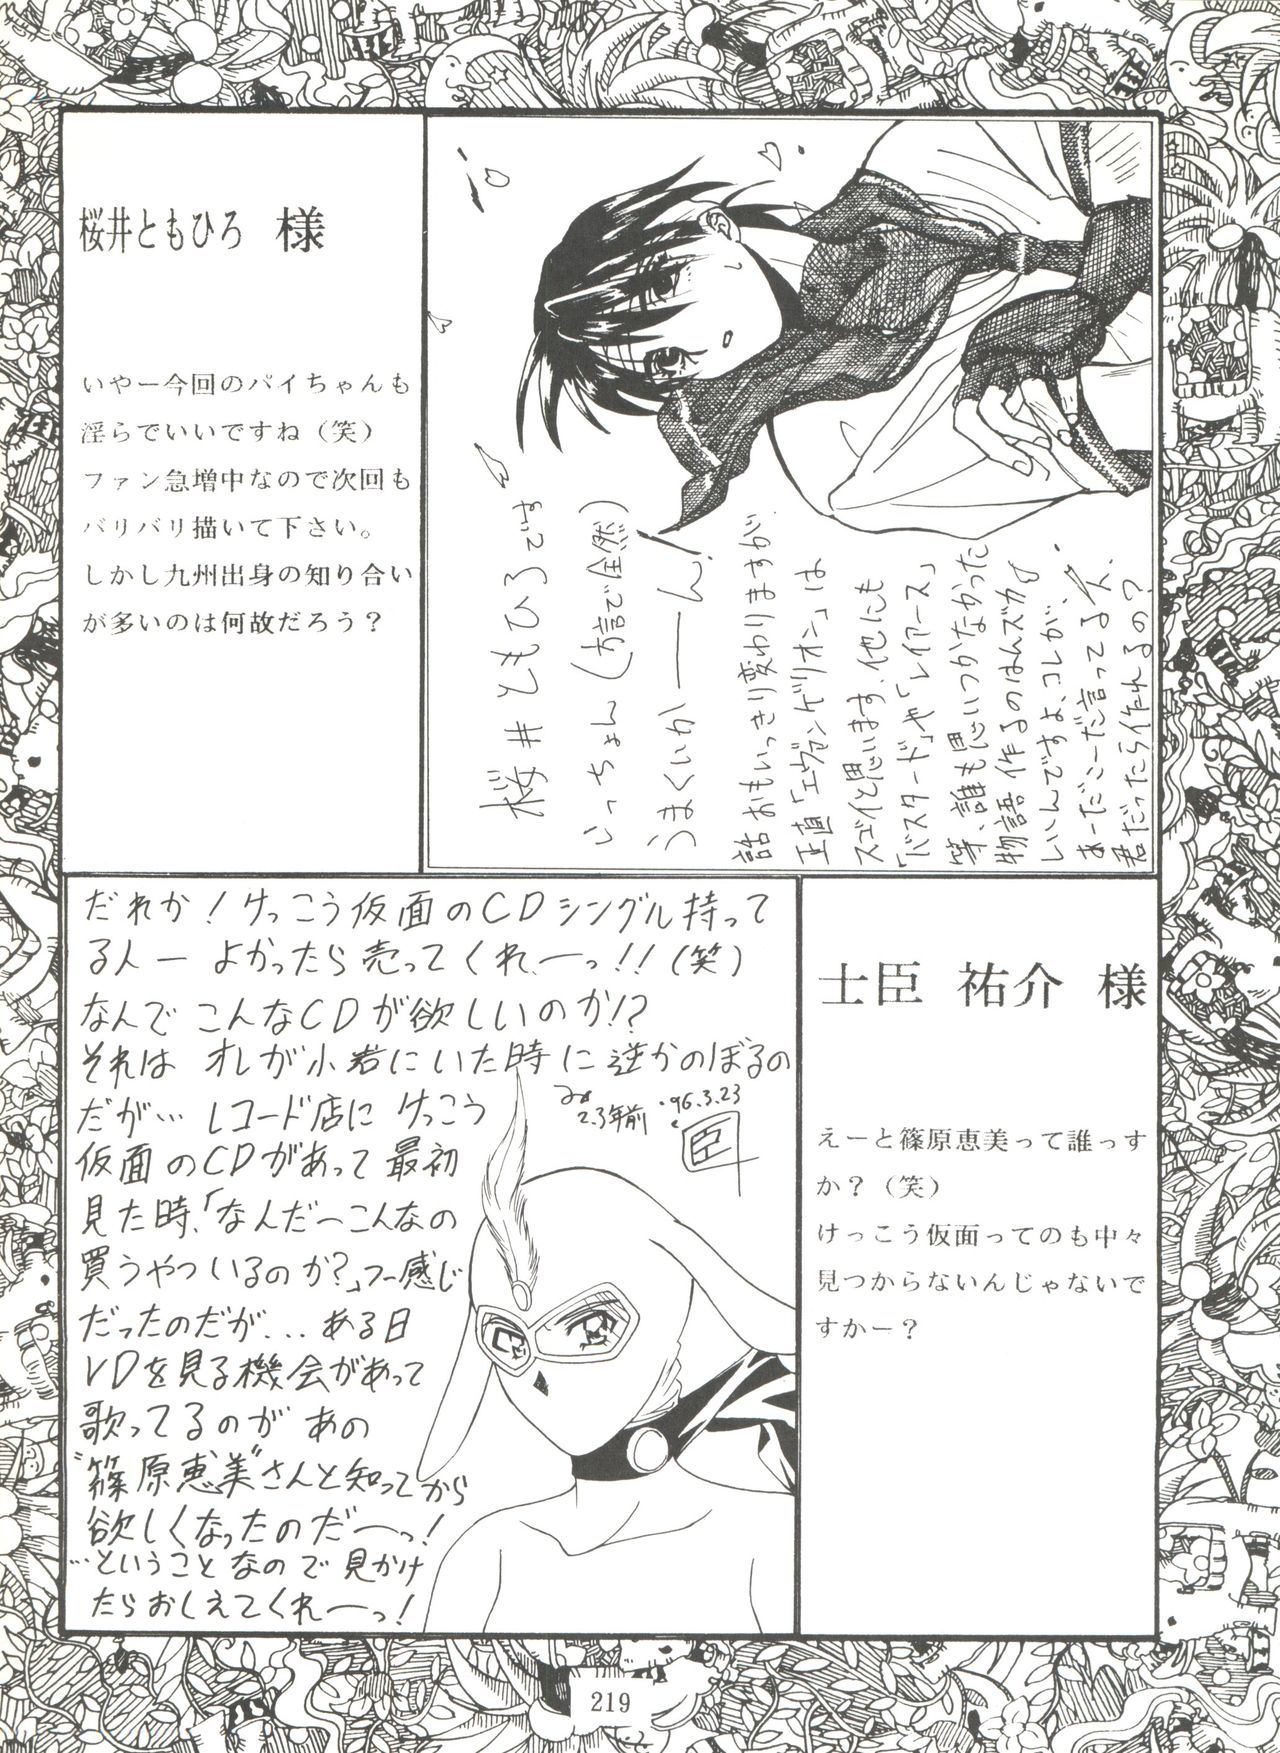 桜井ともひろ 様
いやー今回のパイちゃんも
淫らでいいですね（笑）
ファン急増中なので次回も
バリバリ描いて下さい。
しかし九州出身の知り合い
が多いのは何故だろう？
桜井ともひろです
いっちょん(方言で全然)
うまくいかーーん!
話おもいっきり変わりますが
正直「エヴァンゲリオン」は
スゴイと思います、他にも
「バスタード」や「レイアース」
等、誰も思いつかなかった
物語作るのはムズカシ
しいんですよ、コレが、
あーだこーだ言ってる人、
君だったら作れるの?
だれか!けっこう仮面のCDシングル持って
る人ー よかったら売ってくれーっ!!(笑)
なんでこんなCDが欲しいのか!?
それは オレが小倉にいた時に逆かのぼるの
だが… レコード店に けっこう
仮面のCDがあって最初
見た時、「なんだーこんなの
買うやついるのか?」フー感じ
だったのだが... ある日
VDを見る機会があって
歌ってるのが あの
"篠原恵美"さんと知ってから
欲しくなったのだーっ!
…ということなので見かけ
たらおしえてくれーっ!
2.3年前
'96.3.23
臣
士臣 祐介 様
えーと篠原恵美って誰っす
か？（笑）
けっこう仮面ってのも中々
見つからないんじゃないで
すかー？
219